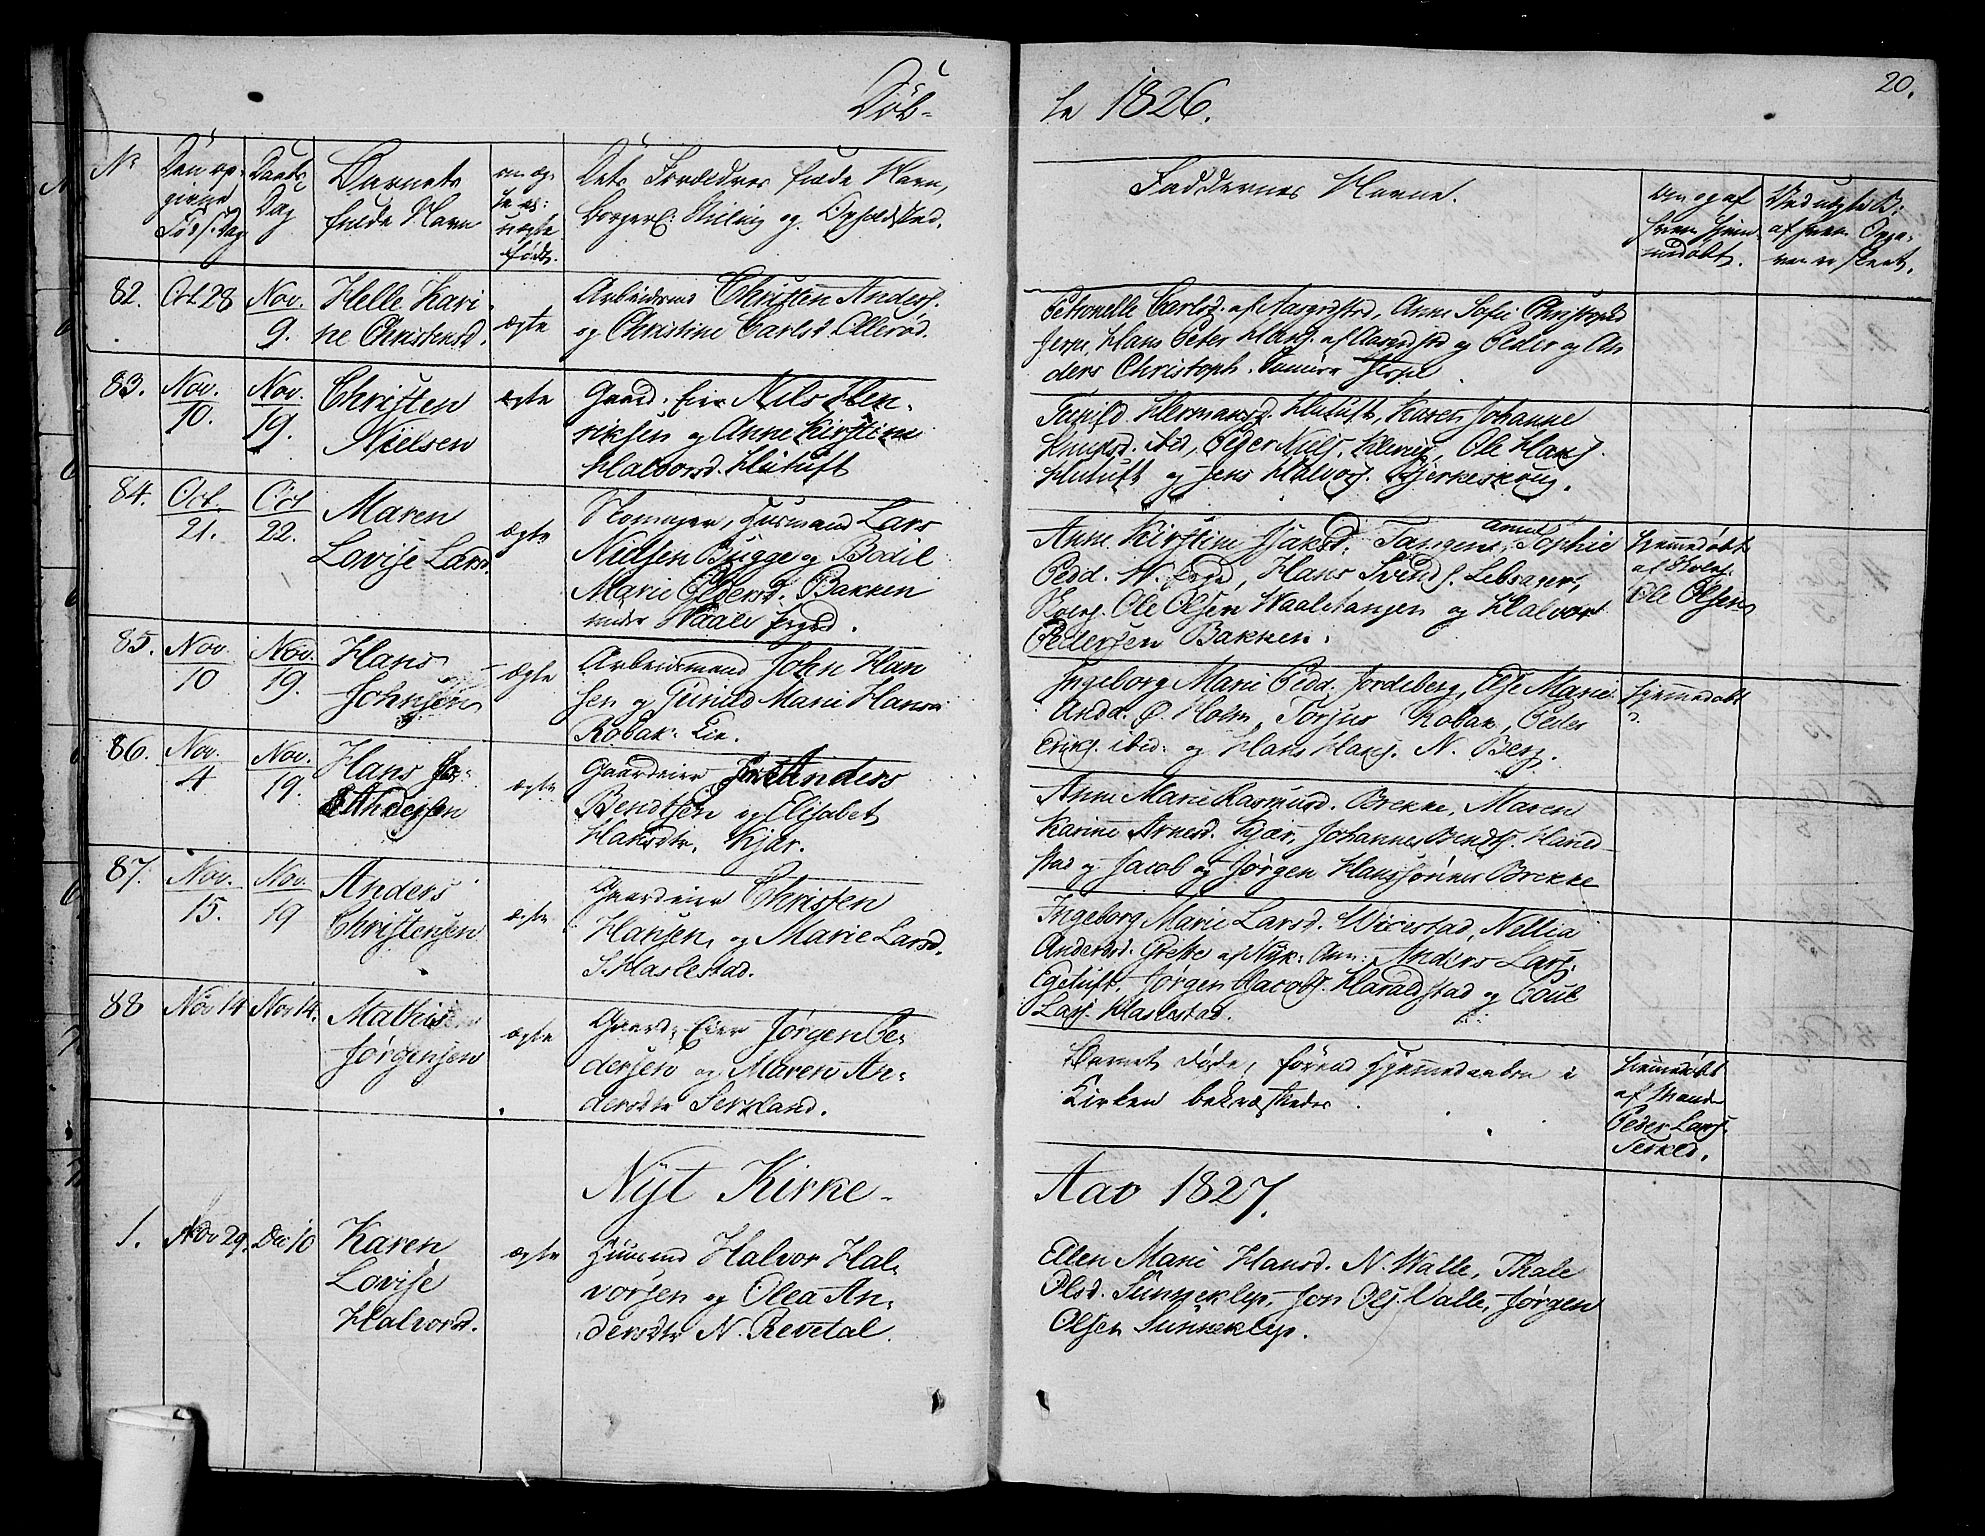 Døb-
te 1826.
20.
No
Den op-
givne
Føds. Dag
Daabs
Dag
Barnets
fulde Navn
om æg-
te el:
uægte
født.
Dets Forældres fulde Navn,
Borgerl: Stilling og Opholdsted.
Faddernes Navne.
om og af
hvem hjem-
medøbt.
82.
Oct. 28
Nov.
9.
Helle Kari-
ne Christensd.
ægte
Arbeidsmd Christen Anders.
og Christine Carlsd. Ollerød.
Petronelle Carlsd. af Aasgrdstrd, Anne Sofie Christophd
Hans Peter Hans. af Aasgrdstrd og Peder og An
ders Christoph.
83.
Nov.
10.
Nov.
19.
Christen
Nielsen
ægte
Gaard. Eier Nils Hen-
riksen og Anne Kirstine
Halvorsd. Hutuft
Hermansd. Hutuft, Karen Johanne
Knudsd. ibd, Peder Niels. Ole Hans.
Hutuft og Jens Halvors. Bjerkeskoug.
84.
Oct.
21.
Oct
22.
Maren
Lovise Larsd.
ægte
Skomager, Husmand Lars
Nielsen Bugge og Bodil
Marie Pedersd. Bakken
under Waale Prgrd.
Anne Kirstine Isaksd. Tangen, Anne Sophie
Pedd. W. Prgd, Hans Svends.
Ole Olsen Waaletangen og Halvor
Pedersen Bakken.
hjemmedøbt
af Skolel.
Ole Olsen
85.
Nov.
10
Nov.
19.
Hans
Johnsen
ægte
Arbeidsmand John Han
sen og Gunild Marie Hansd
Robak: Eie.
Ingeborg Marie Pedd. Jordeberg, Else Marie
Andd. Ø. Holm, Torjus Robak, Peder
ibid: og Hans Hans. N. Berg.
hjemmedøbt
86.
Nov.
4
Nov.
19.
Hans
Andersen
ægte
Gaardeier Anders
Bendtsen og Elisabet
Haksdtr. Kjær.
Anne Marie Rasmusd. Brekke, Maren
Karine Arnesd. Kjær, Johannes Bendts. Haned-
stad og Jacob og Jørgen Hanssønner Brekke
87.
Nov.
15.
Nov.
19
Anders
Christensen
ægte
Gaardeier Christen
Hansen og Marie Larsd.
S. Haslestad.
Ingeborg Marie Larsd. Wirestad, Nellia
Andersd. Grette af Nyk: Ann: Anders Lars.
Egetuft, Jørgen Jacobs. Haraldstad og Poul
Lars. Haslestad.
88
Nov 14
Nov 14.
Mathis
Jørgensen
ægte
Gaard. Eier Jørgen Pe-
dersen og Maren An-
dersdtr Serkland.
Barnet døde, førend Hjemmedaaben i
Kirken bekræftedes.
hjemmedøbt
af Mand
Peder Lars.
Serkld.
Nyt Kirke-
Aar 1827.
1.
Nov 29.
Dec 10
Karen
Lovise
Halvorsd.
ægte
Husmd Halvor Hal-
vorsen og Olea An-
dersdtr N. Revetal.
Ellen Marie Hansd. N. Walle, Thale
Olsd. Sunneklep, Jon Ols. Valle, Jørgen
Olsen Sunneklep.